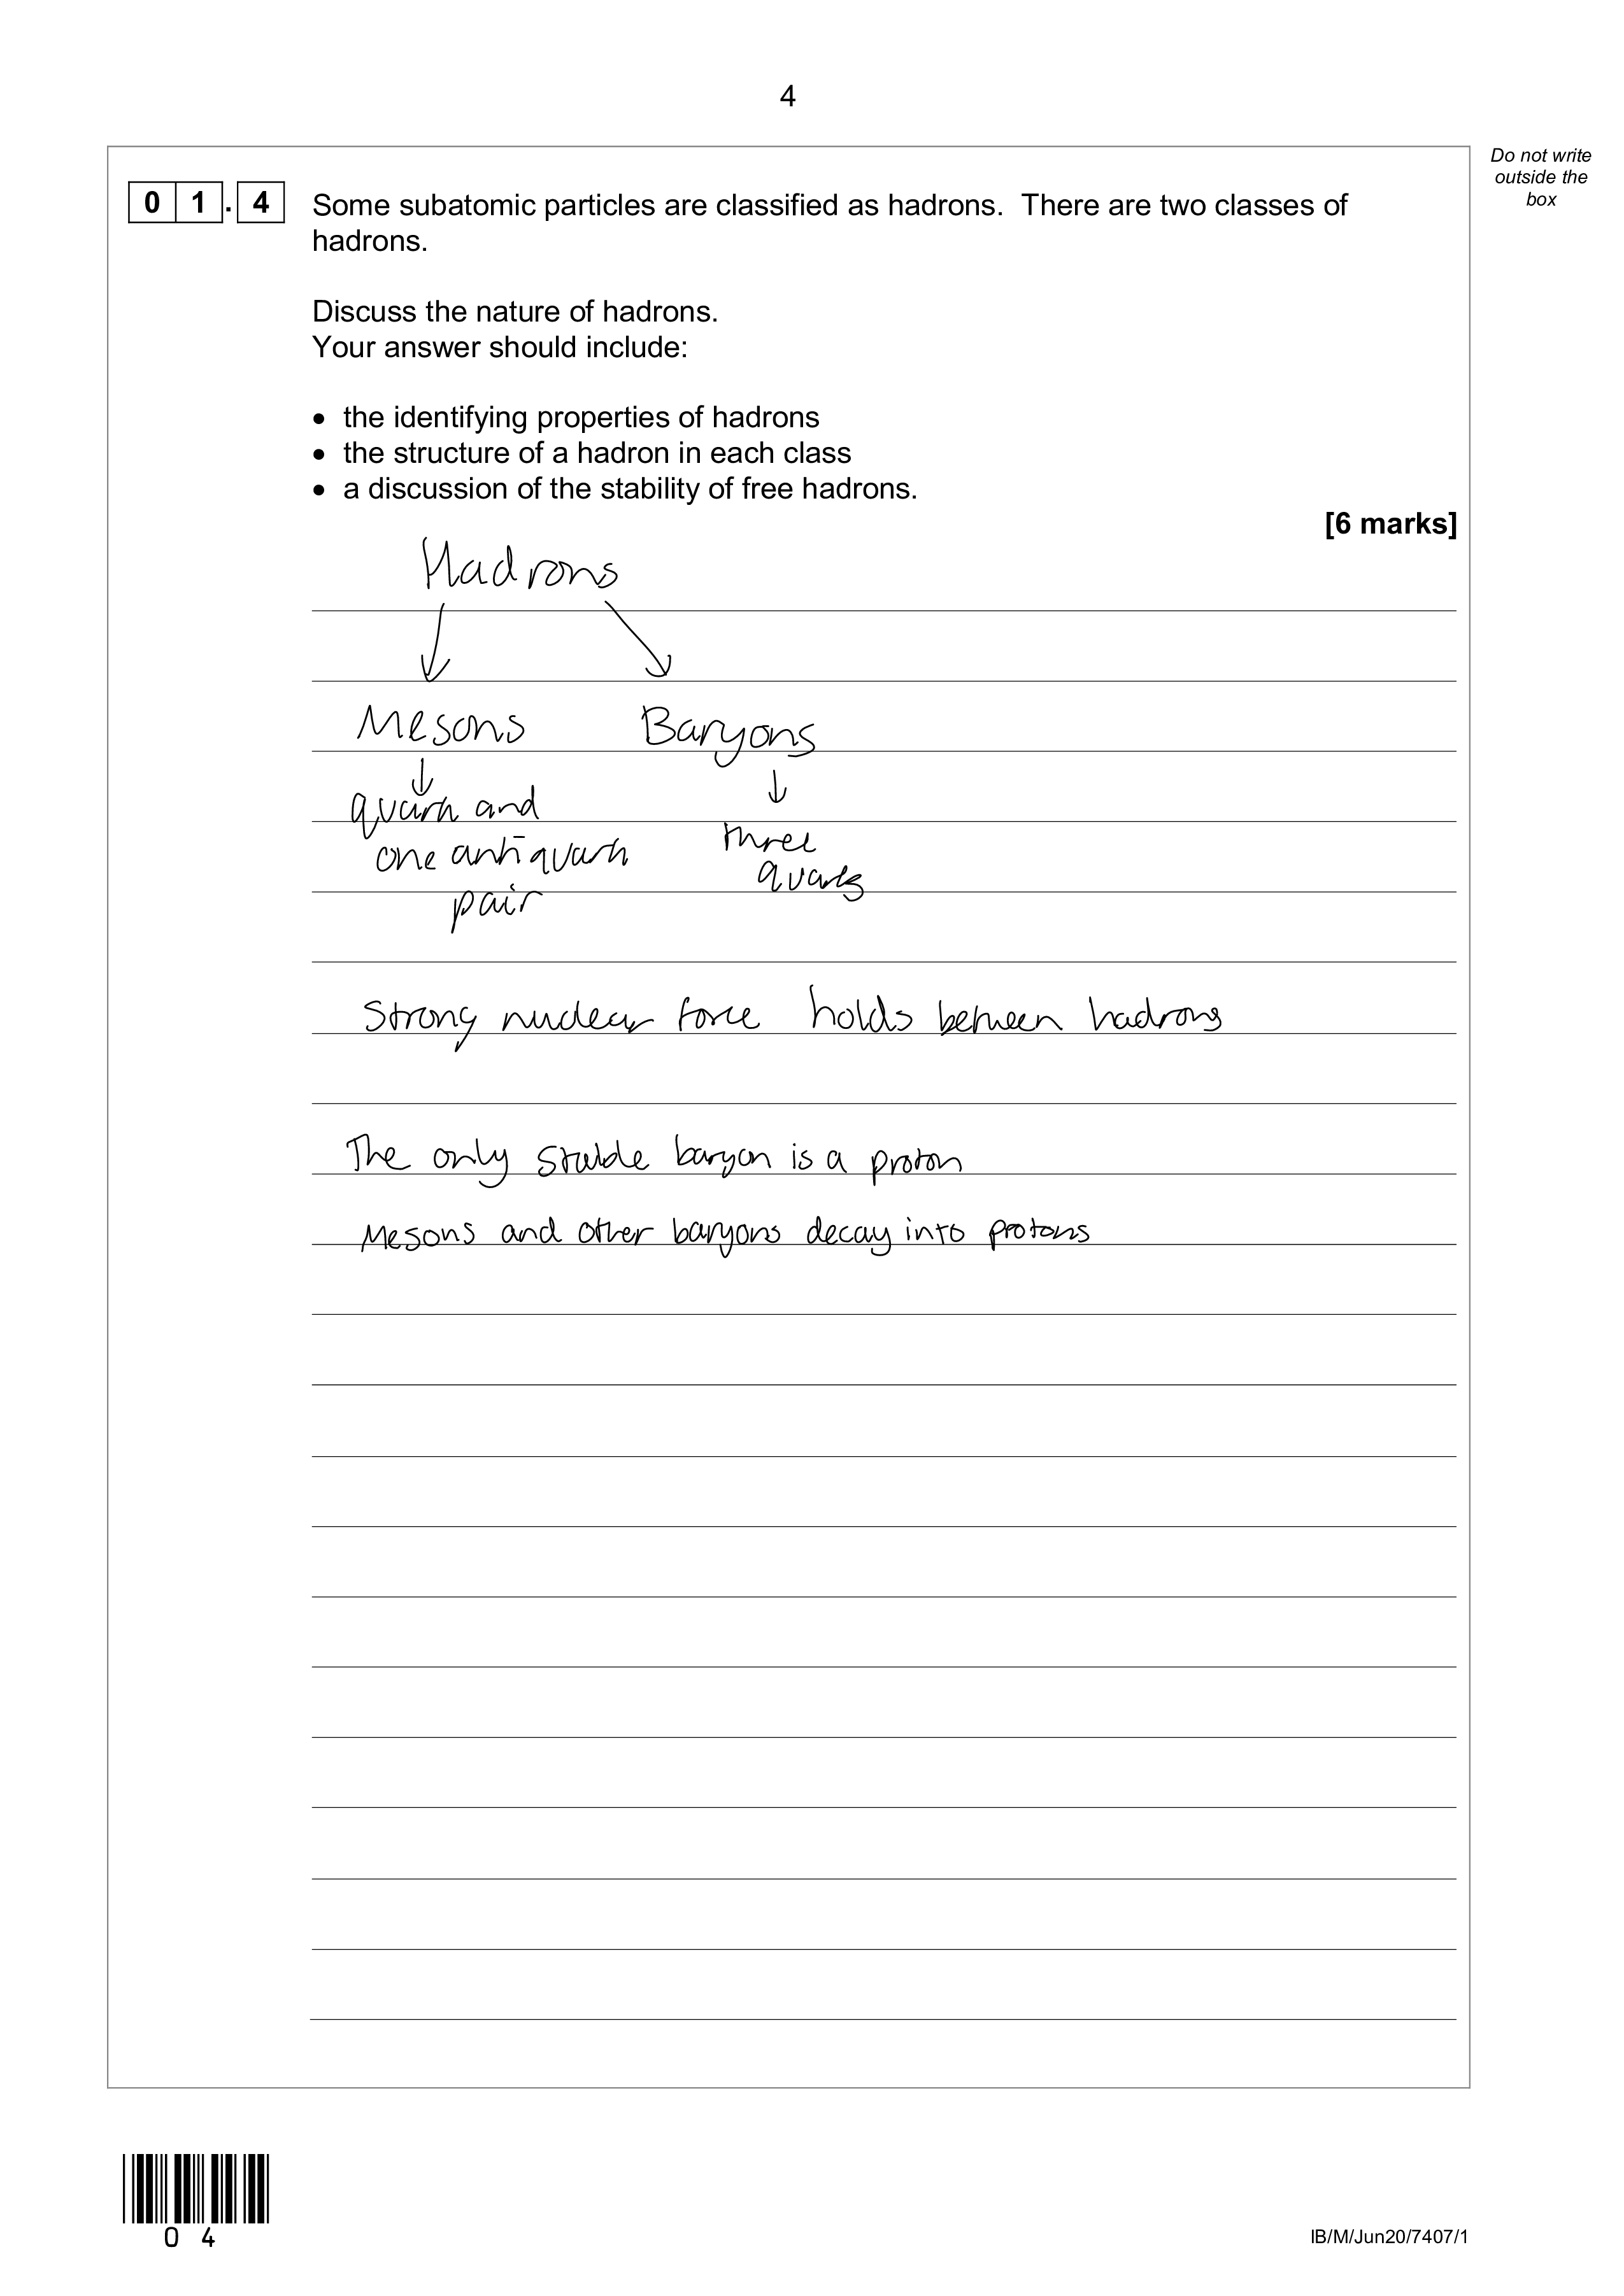 4
Do not write
outside the
box
0 1 . 4 Some subatomic particles are classified as hadrons. There are two classes of
hadrons.
Discuss the nature of hadrons.
Your answer should include:
• the identifying properties of hadrons
• the structure of a hadron in each class
• a discussion of the stability of free hadrons.
[6 marks]
Hadrons
Mesons Baryons
quark and
one antiquark
pair
three
quarks
Strong nuclear force holds between hadrons
The only stable baryon is a proton
Mesons and other baryons decay into protons
0 4
IB/M/Jun20/7407/1